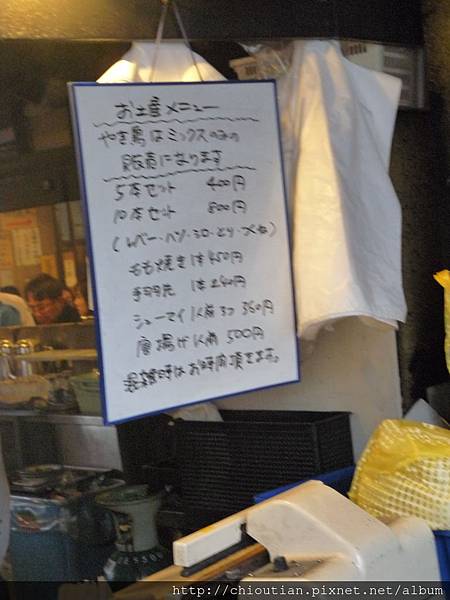 お土産メニュー
やき鳥はミックスのみの
販売になります
5本セット 400円
10本セット 800円
(レバー・ハツ・シロ・とり・つくね)
もも焼き 1本 450円
手羽元 1本 240円
シューマイ 1人前 3コ 360円
唐揚げ 1人前 500円
混雑時はお時間頂きます。
http://chioutian.pixnet.net/album